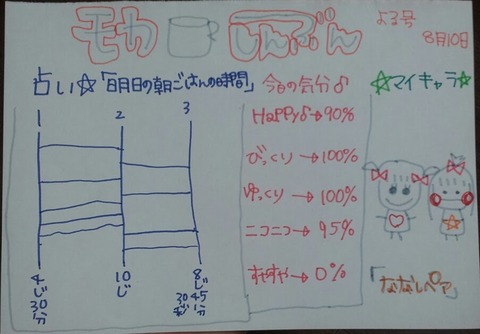 モカ しんぶん
よる号
8月10日
占い☆「明日の朝ごはんの時間」
1 2 3
4じ30分
10じ
8じ45分
今日の気分♪
Happy♪→90%
びっくり→100%
ゆっくり→100%
ニコニコ→95%
すやすや→0%
☆マイキャラ☆
「ななしペア」